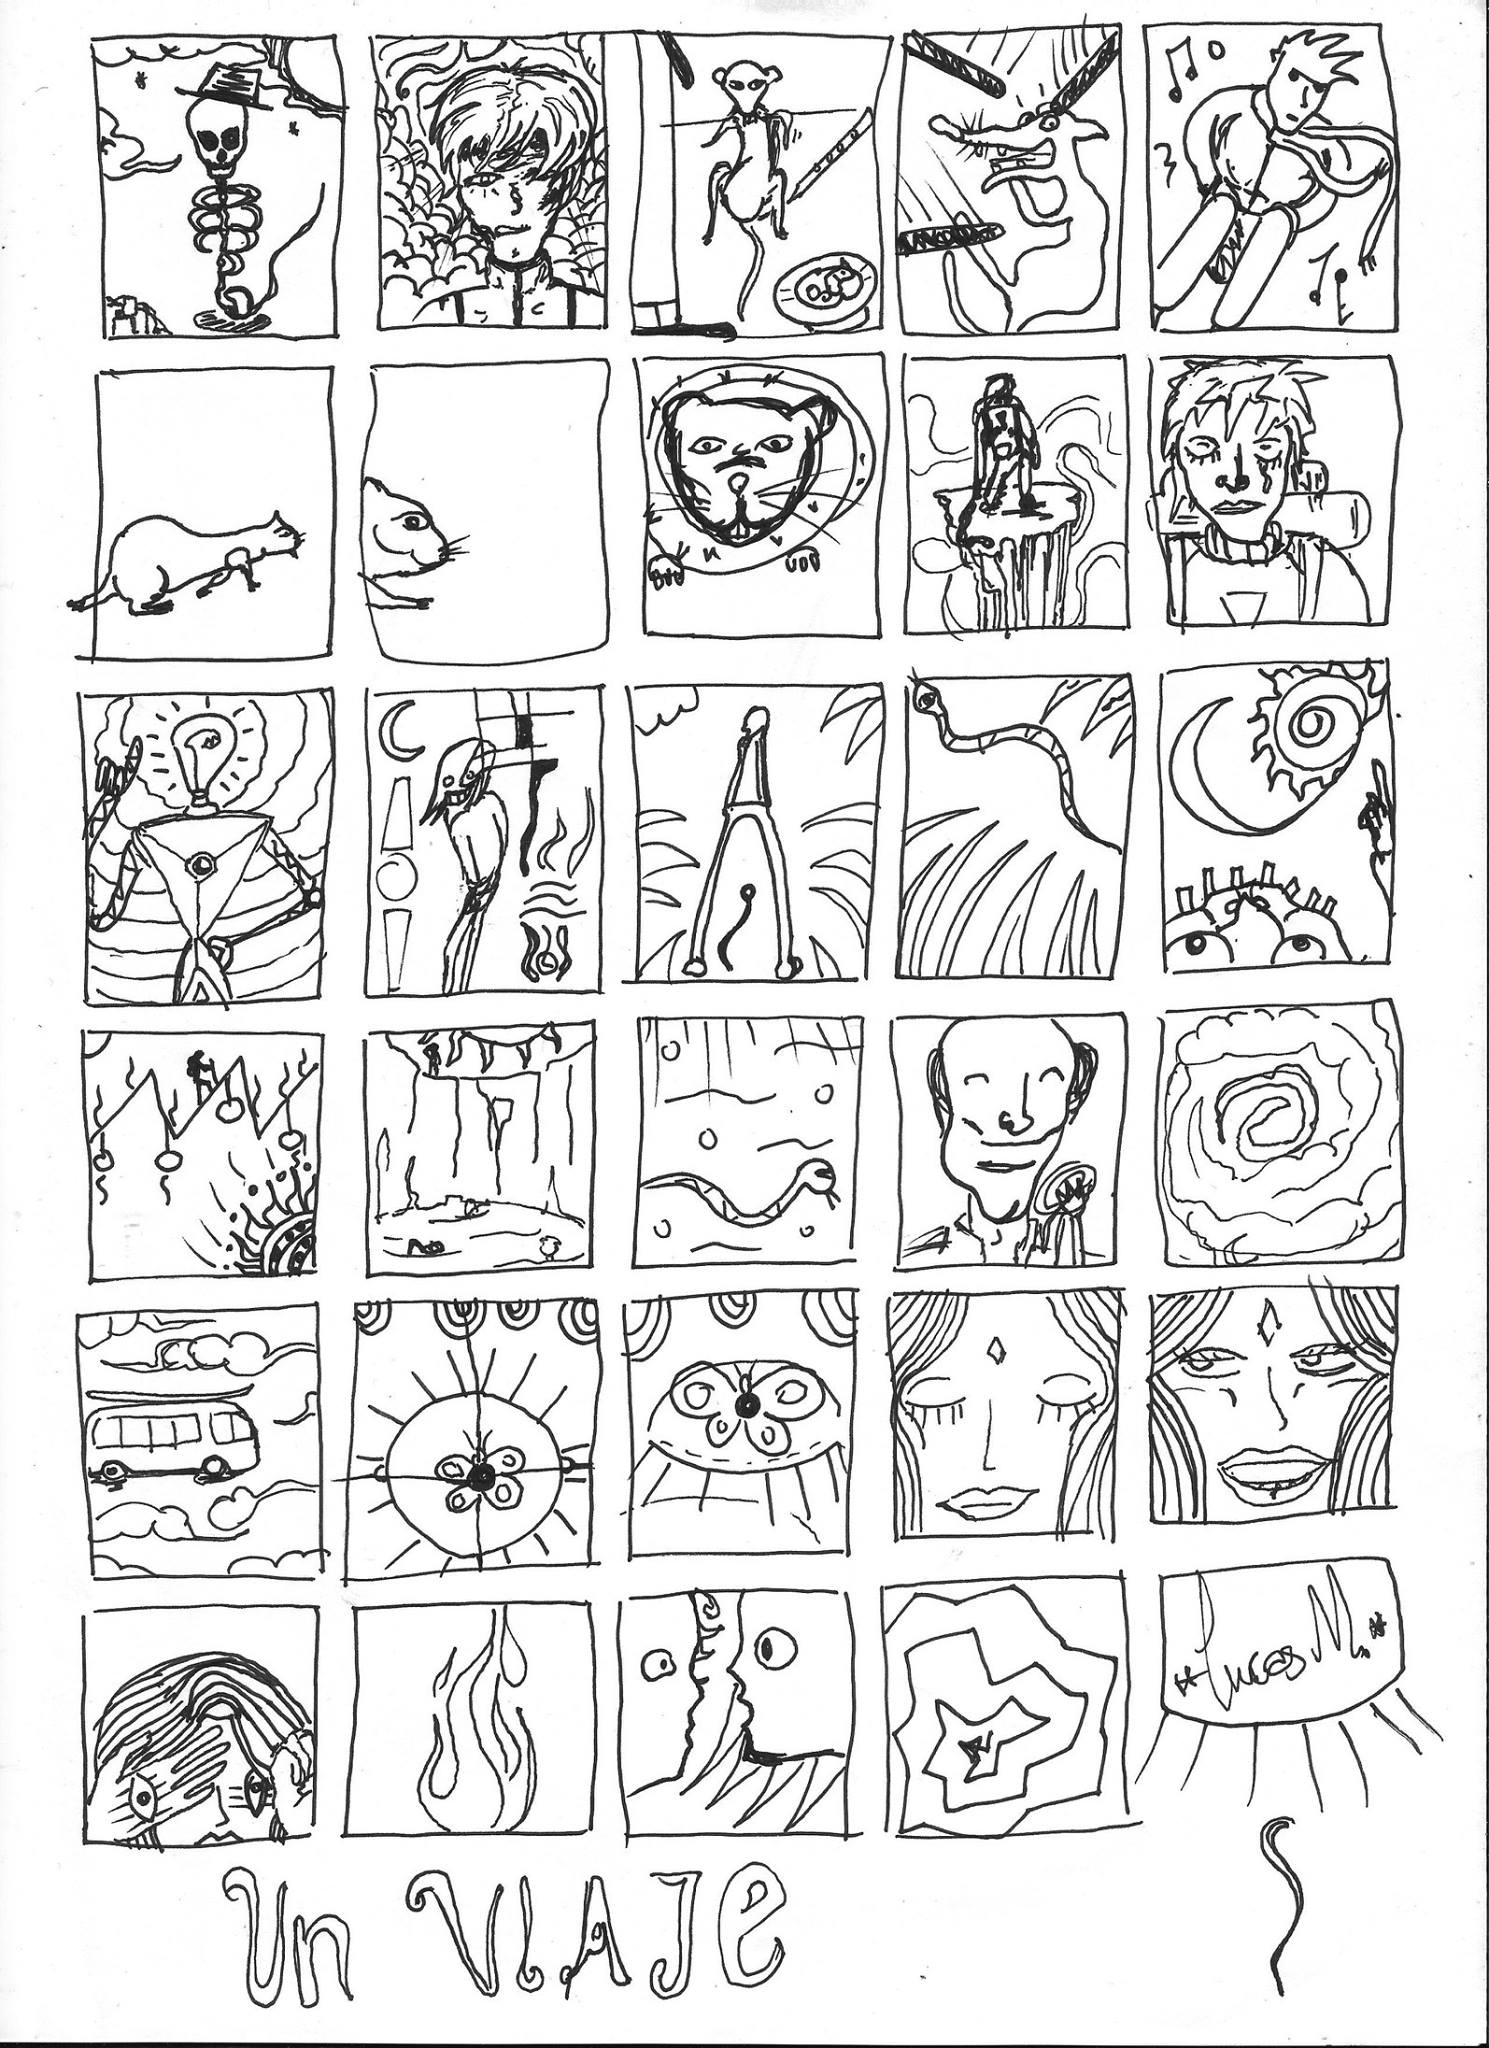 *Lucas M.*
Un VIAJE